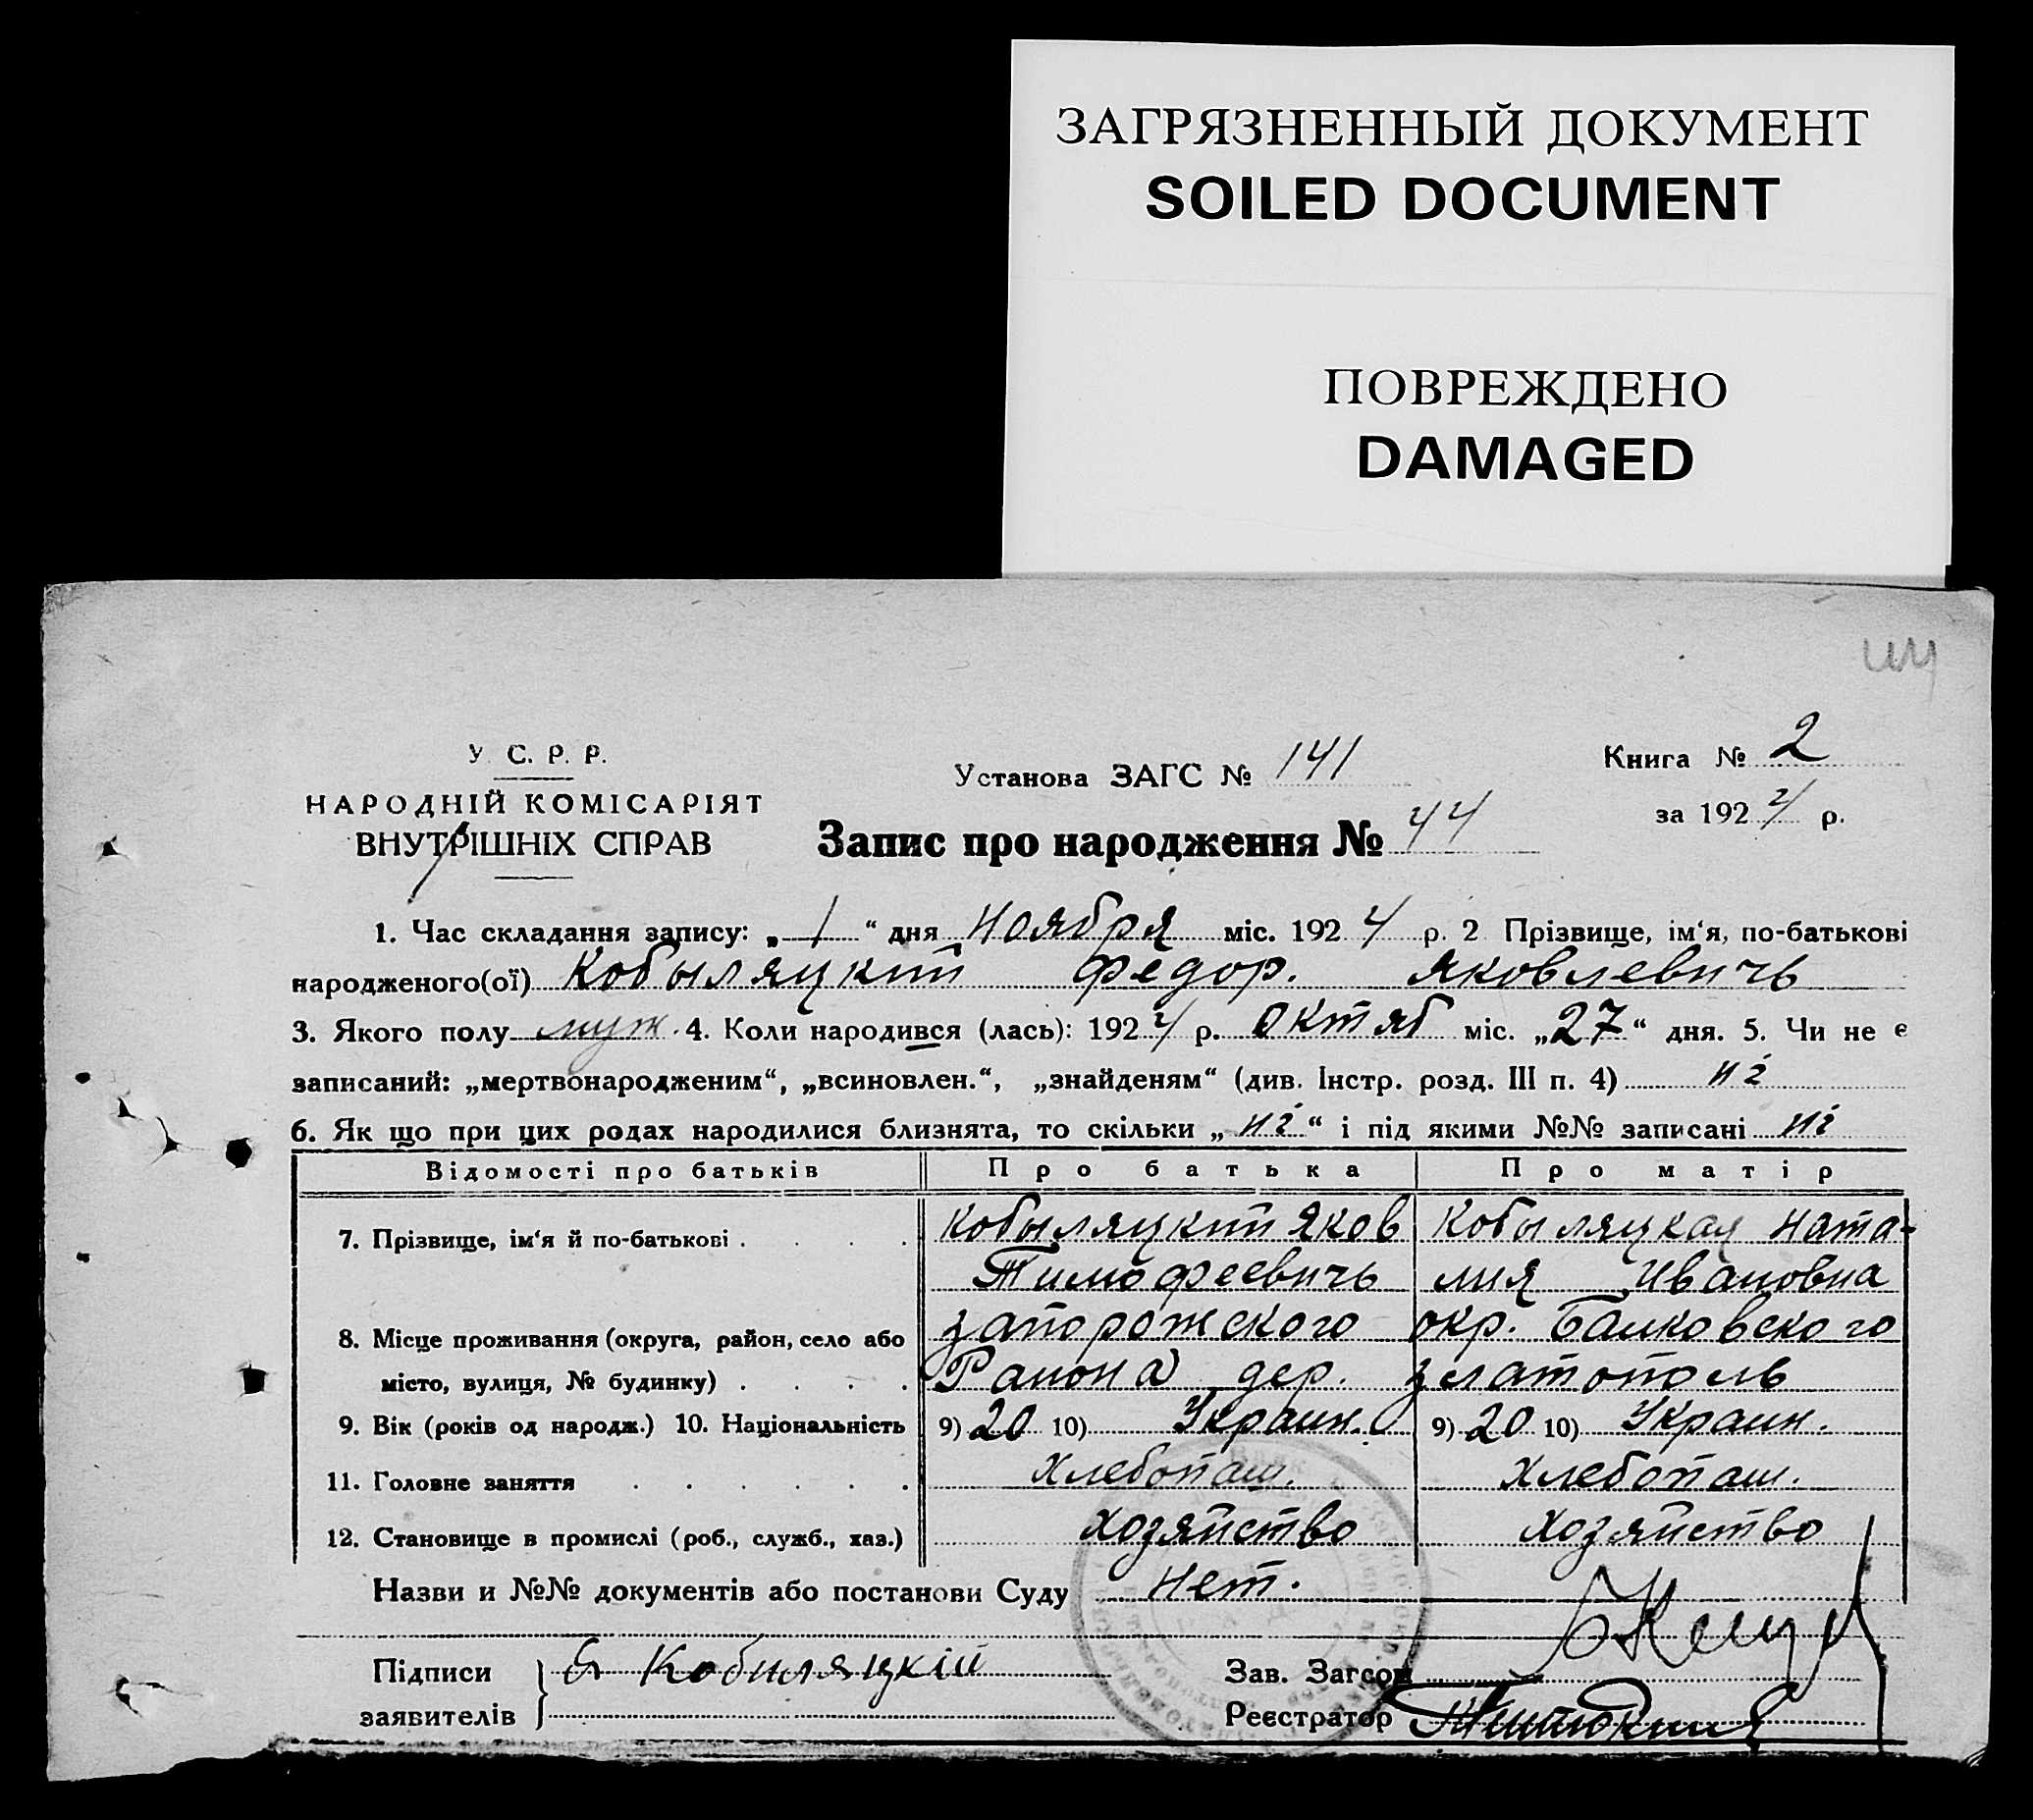 ЗАГРЯЗНЕННЫЙ ДОКУМЕНТ
SOILED DOCUMENT
ПОВРЕЖДЕНО
DAMAGED
У. С. Р. Р.
НАРОДНІЙ КОМІСАРІЯТ
ВНУТРІШНІХ СПРАВ
Установа ЗАГС № 141
Книга № 2
за 1924 р.
Запис про народження № 44
1. Час складання запису: „1“ дня Ноября міс. 1924 р. 2 Прізвище, ім‘я, по-батькові
народженого(ої) Кобыляцкий Федор. Яковлевичь
3. Якого полу муж. 4. Коли народився (лась): 1924 р. Октяб міс. „27“ дня. 5. Чи не є
записаний: „мертвонародженим“, „всиновлен.“, „знайденям“ (див. Інстр. розд. III п. 4) ні
6. Як що при цих родах народилися близнята, то скільки „ні“ і під якими №№ записані ні
Відомості про батьків Про батька Про матір
7. Прізвище, ім‘я й по-батькові . . . . Кобыляцкий Яков Кобыляцкая Ната-
Тимофеевичь лия Ивановна
8. Місце проживання (округа, район, село або Запорожского окр. Балковского
місто, вулиця, № будинку) . . . . Района дер. Златополь
9. Вік (років од народж.) 10. Національність 9) 20 10) Украин. 9) 20 10) Украин.
11. Головне заняття . . . . . . Хлебопаш. Хлебопаш.
12. Становище в промислі (роб., служб., хаз.) Хозяйство Хозяйство
Назви и №№ документів або постанови Суду нет.
Підписи Я Кобиляцкій Зав. Загсом
заявителів Реєстратор